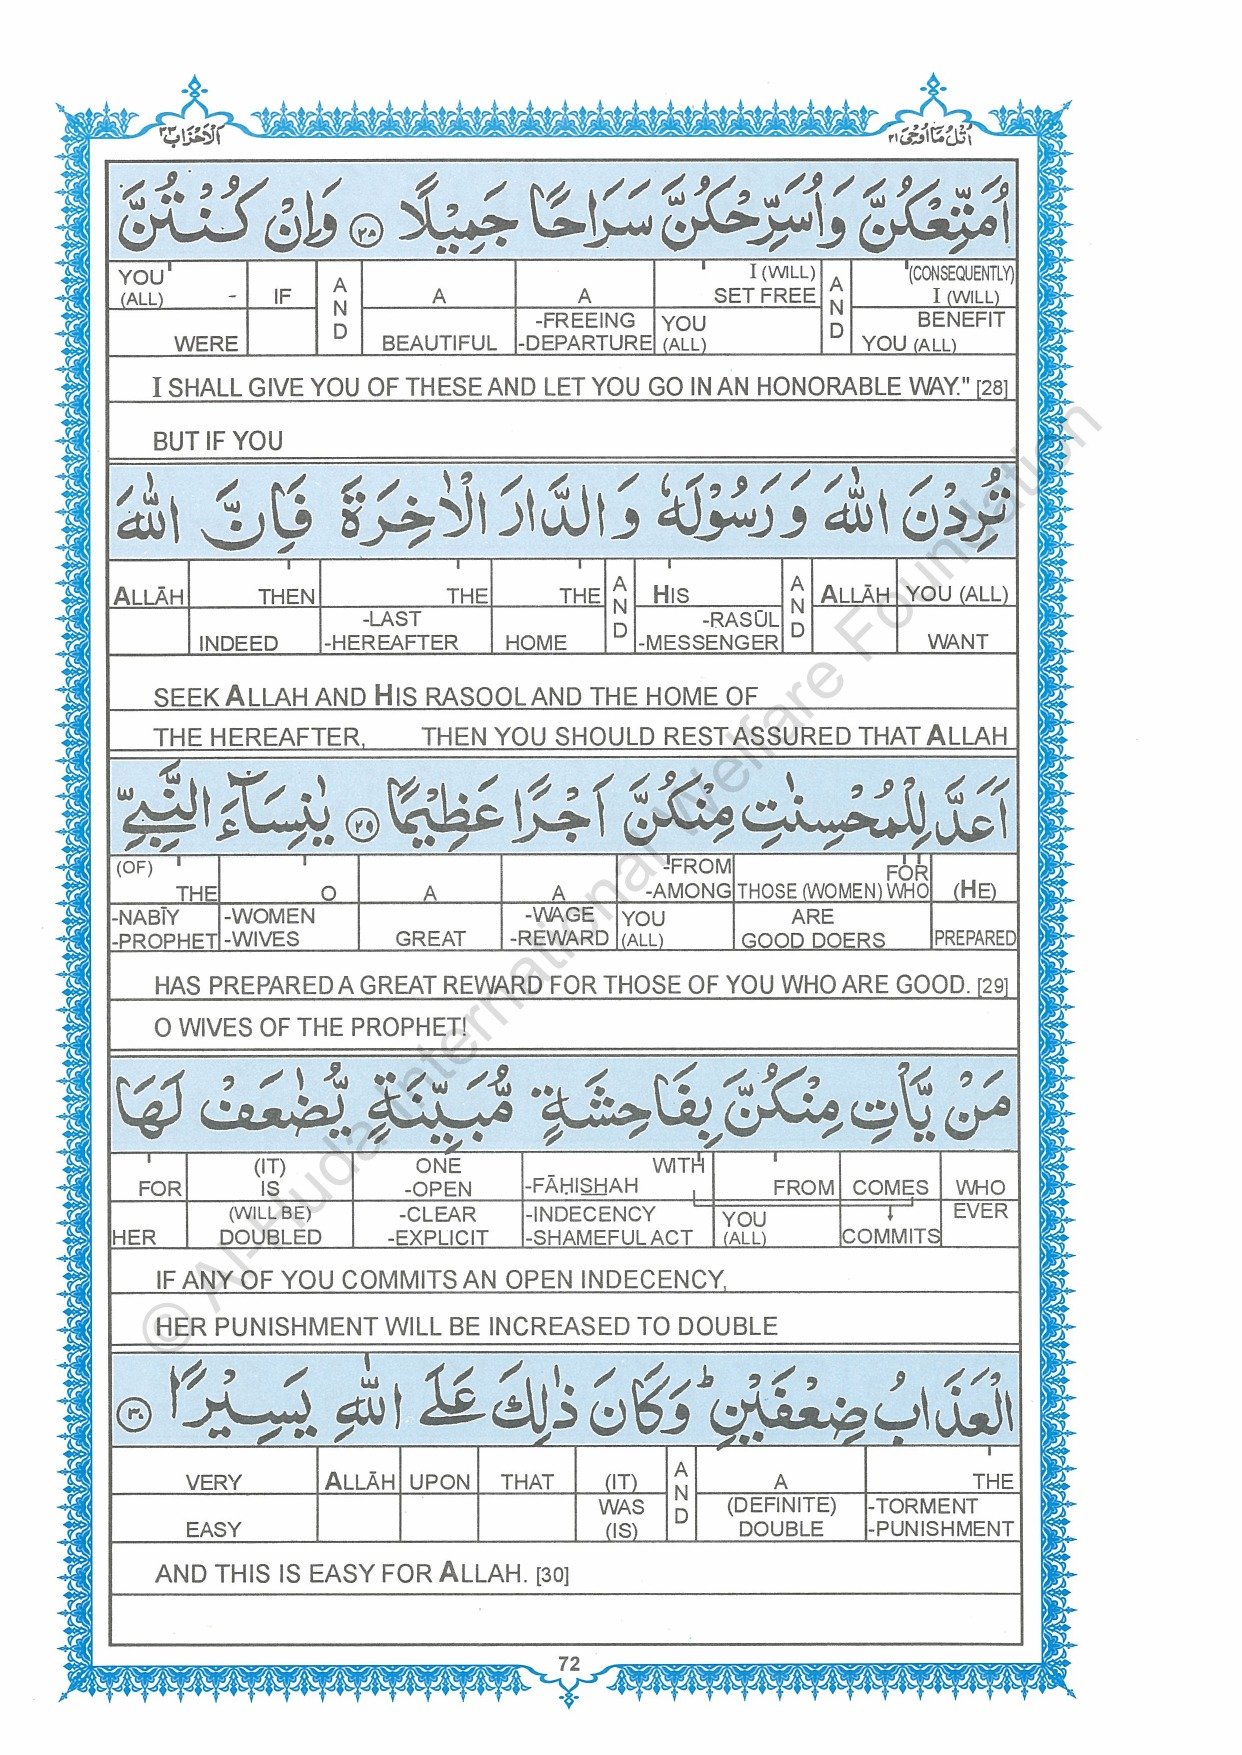 الاحزاب ٣٣
اتل ما اوحی ٢١
اُمَتِّعْكُنَّ وَاُسَرِّحْكُنَّ سَرَاحًا جَمِيْلًا ٢٨ وَاِنْ كُنْتُنَّ
YOU (ALL) - WERE | IF | AND | A BEAUTIFUL | A -FREEING -DEPARTURE | I (WILL) SET FREE YOU (ALL) | AND | (CONSEQUENTLY) I (WILL) BENEFIT YOU (ALL)
I SHALL GIVE YOU OF THESE AND LET YOU GO IN AN HONORABLE WAY." [28]
BUT IF YOU
تُرِدْنَ اللّٰهَ وَرَسُوْلَهٗ وَالدَّارَ الْاٰخِرَةَ فَاِنَّ اللّٰهَ
ALLĀH | THEN INDEED | THE -LAST -HEREAFTER | THE HOME | AND | HIS -RASŪL -MESSENGER | AND | ALLĀH | YOU (ALL) WANT
SEEK ALLAH AND HIS RASOOL AND THE HOME OF
THE HEREAFTER, THEN YOU SHOULD REST ASSURED THAT ALLAH
اَعَدَّ لِلْمُحْسِنٰتِ مِنْكُنَّ اَجْرًا عَظِيْمًا ٢٩ يٰنِسَآءَ النَّبِيِّ
(OF) THE -NABĪY -PROPHET | O -WOMEN -WIVES | A GREAT | A -WAGE -REWARD | -FROM -AMONG YOU (ALL) | FOR THOSE (WOMEN) WHO ARE GOOD DOERS | (HE) PREPARED
HAS PREPARED A GREAT REWARD FOR THOSE OF YOU WHO ARE GOOD. [29]
O WIVES OF THE PROPHET!
مَنْ يَّاْتِ مِنْكُنَّ بِفَاحِشَةٍ مُّبَيِّنَةٍ يُّضٰعَفْ لَهَا
FOR HER | (IT) IS (WILL BE) DOUBLED | ONE -OPEN -CLEAR -EXPLICIT | WITH -FĀḤISHAH -INDECENCY -SHAMEFUL ACT | FROM YOU (ALL) | COMES COMMITS | WHO EVER
IF ANY OF YOU COMMITS AN OPEN INDECENCY,
HER PUNISHMENT WILL BE INCREASED TO DOUBLE
الْعَذَابُ ضِعْفَيْنِ ؕ وَكَانَ ذٰلِكَ عَلَى اللّٰهِ يَسِيْرًا ٣٠
VERY EASY | ALLĀH | UPON | THAT | (IT) WAS (IS) | AND | A (DEFINITE) DOUBLE | THE -TORMENT -PUNISHMENT
AND THIS IS EASY FOR ALLAH. [30]
72
© Al-Huda International Welfare Foundation